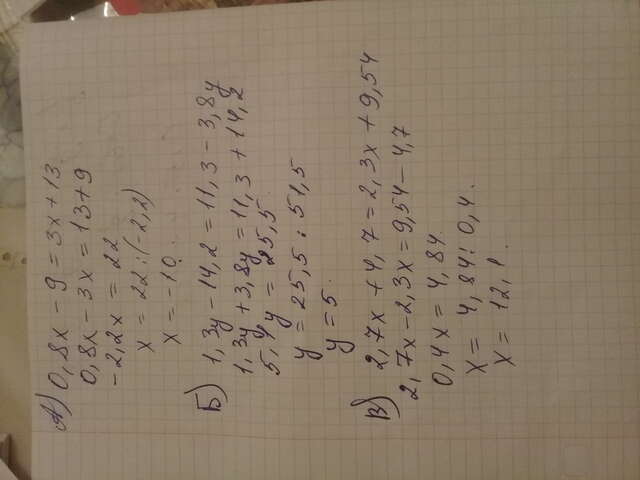 А) 0,8х - 9 = 3х + 13
0,8х - 3х = 13 + 9
-2,2х = 22
х = 22 : (-2,2)
х = -10.
Б) 1,3у - 14,2 = 11,3 - 3,8у
1,3у + 3,8у = 11,3 + 14,2
5,1у = 25,5.
у = 25,5 : 51,5
у = 5.
В) 2,7х + 4,7 = 2,3х + 9,54
2,7х - 2,3х = 9,54 - 4,7
0,4х = 4,84.
х = 4,84 : 0,4.
х = 12,1.